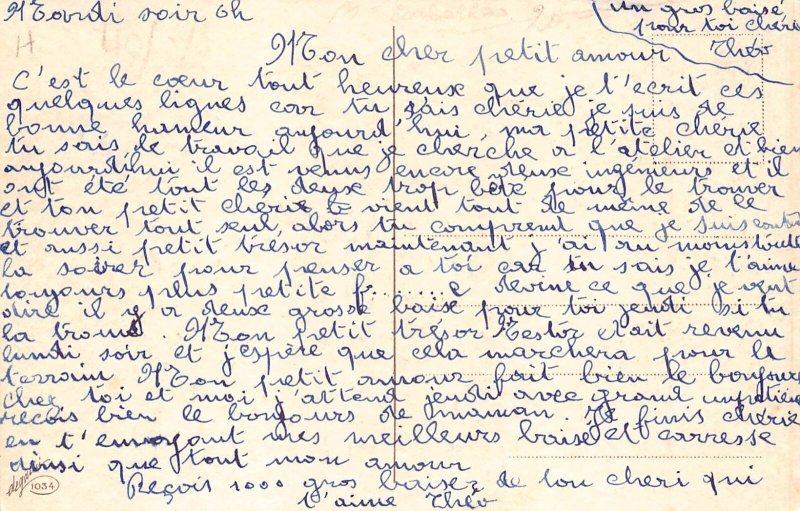 Mardi soir 6h
Un gros baisé
pour toi chérie
Théo
Mon cher petit amour
C'est le cœur tout heureuse que je t'ecrit ces
quelques lignes car tu sais chérie je suis de
bonne humeur aujourd'hui, ma petite chérie
tu sais le travail que je cherche a l'atelier et bien
aujourd'hui il est venus encore deux ingénieurs et il
ont été tout les deux trop bête pour le trouver
et ton petit cherie vient tout de même de le
trouver tout seul, alors tu comprend que je suis content
et aussi petit tresor maintenant j'ai au moins toute
la soirer pour penser a toi car tu sais je t'aime
toujours plus petite f.......e devine ce que je veut
dire il y a deux grosse baise pour toi jeudi si tu
la trouve. Mon petit trésor Nestor etait revenu
lundi soir et j'espère que cela marchera pour le
terrain Mon petit amour fait bien le bonjour
chez toi et moi j'attend jeudi avec grand impatience
reçois bien le bonjours de maman. Je finis chérie
en t'envoyant mes meilleurs baise et carresse
ainsi que tout mon amour
Reçois 1000 gros baisez de ton cheri qui
t'aime Théo
1034